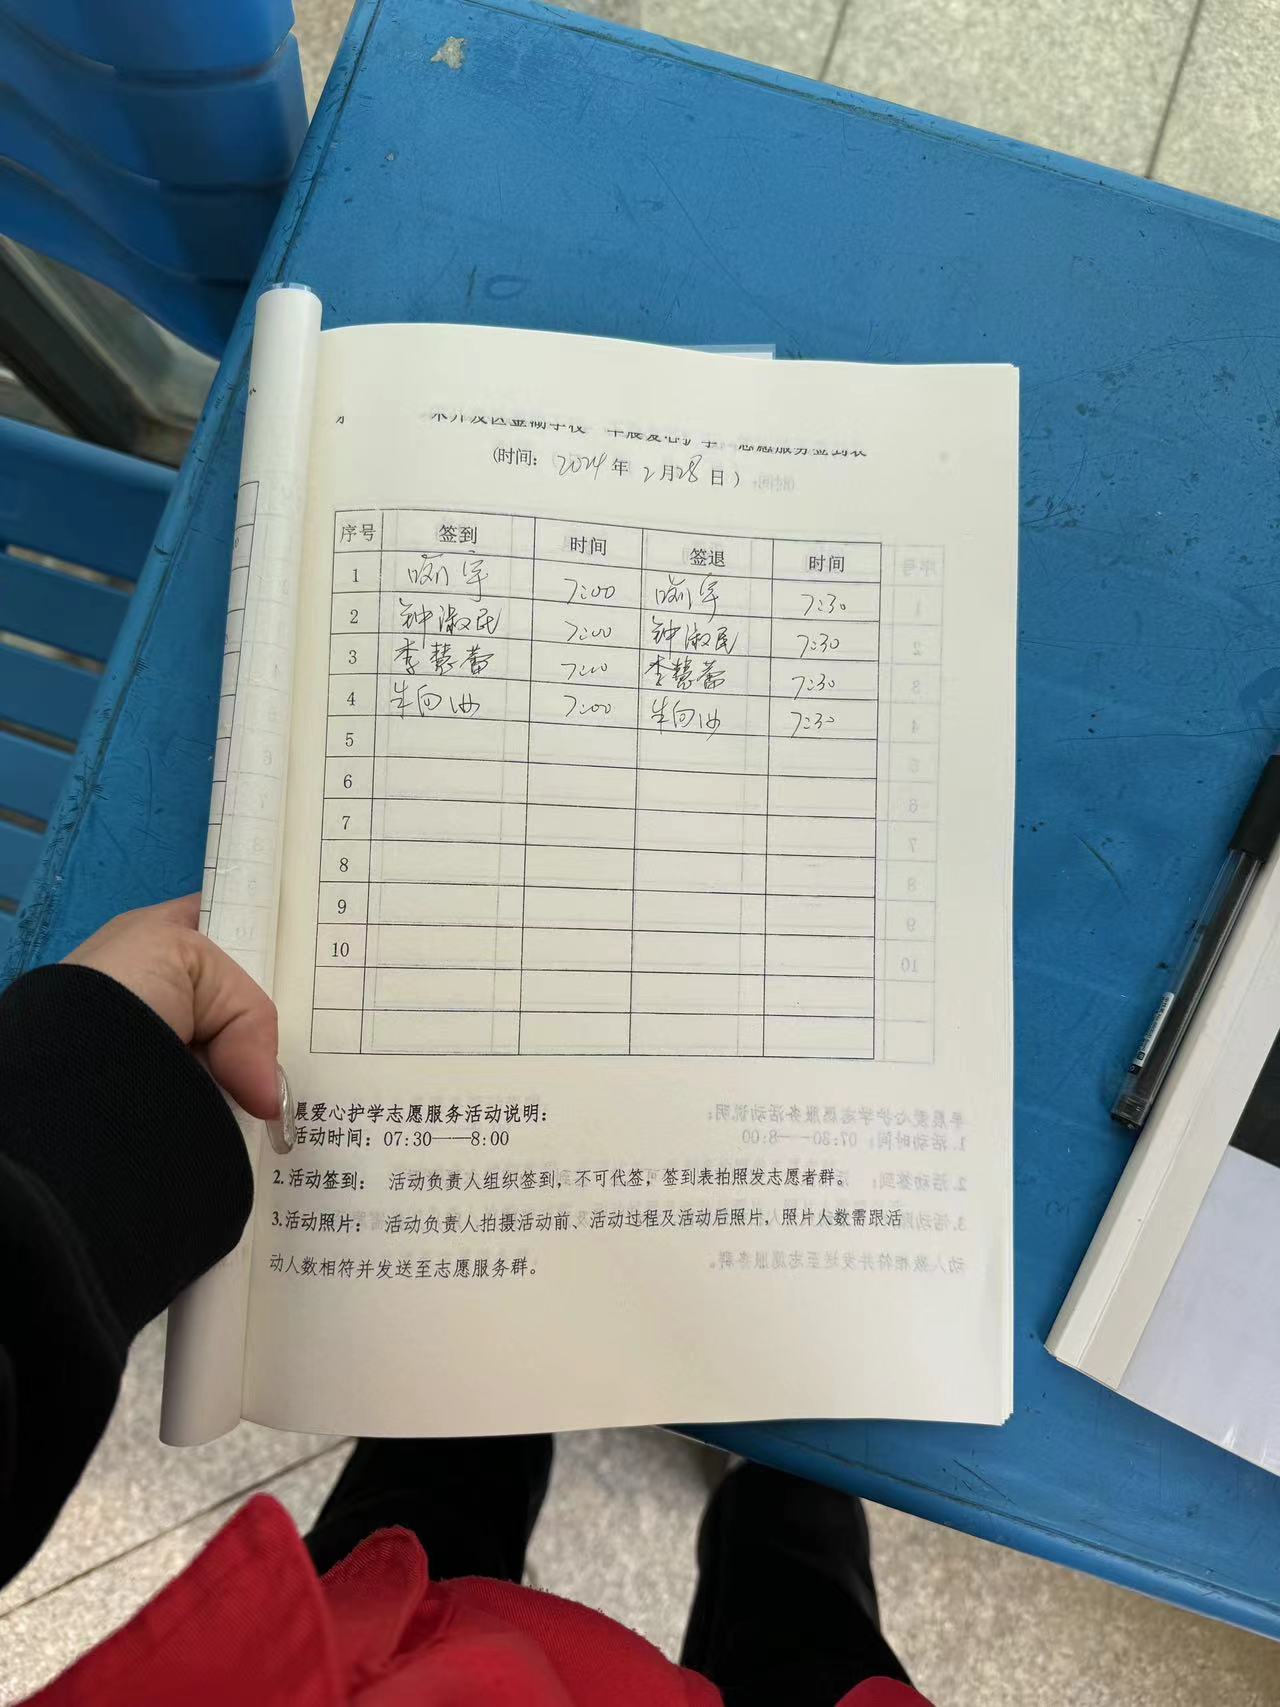 (时间：2024年2月28日）
序号 签到 时间 签退 时间
1 7:00 7:30
2 钟淑民 7:00 钟淑民 7:30
3 李慧蕾 7:00 李慧蕾 7:30
4 牛向 7:00 牛向 7:30
5
6
7
8
9
10
晨爱心护学志愿服务活动说明：
活动时间：07:30——8:00
2.活动签到： 活动负责人组织签到，不可代签，签到表拍照发志愿者群。
3.活动照片： 活动负责人拍摄活动前、活动过程及活动后照片，照片人数需跟活
动人数相符并发送至志愿服务群。